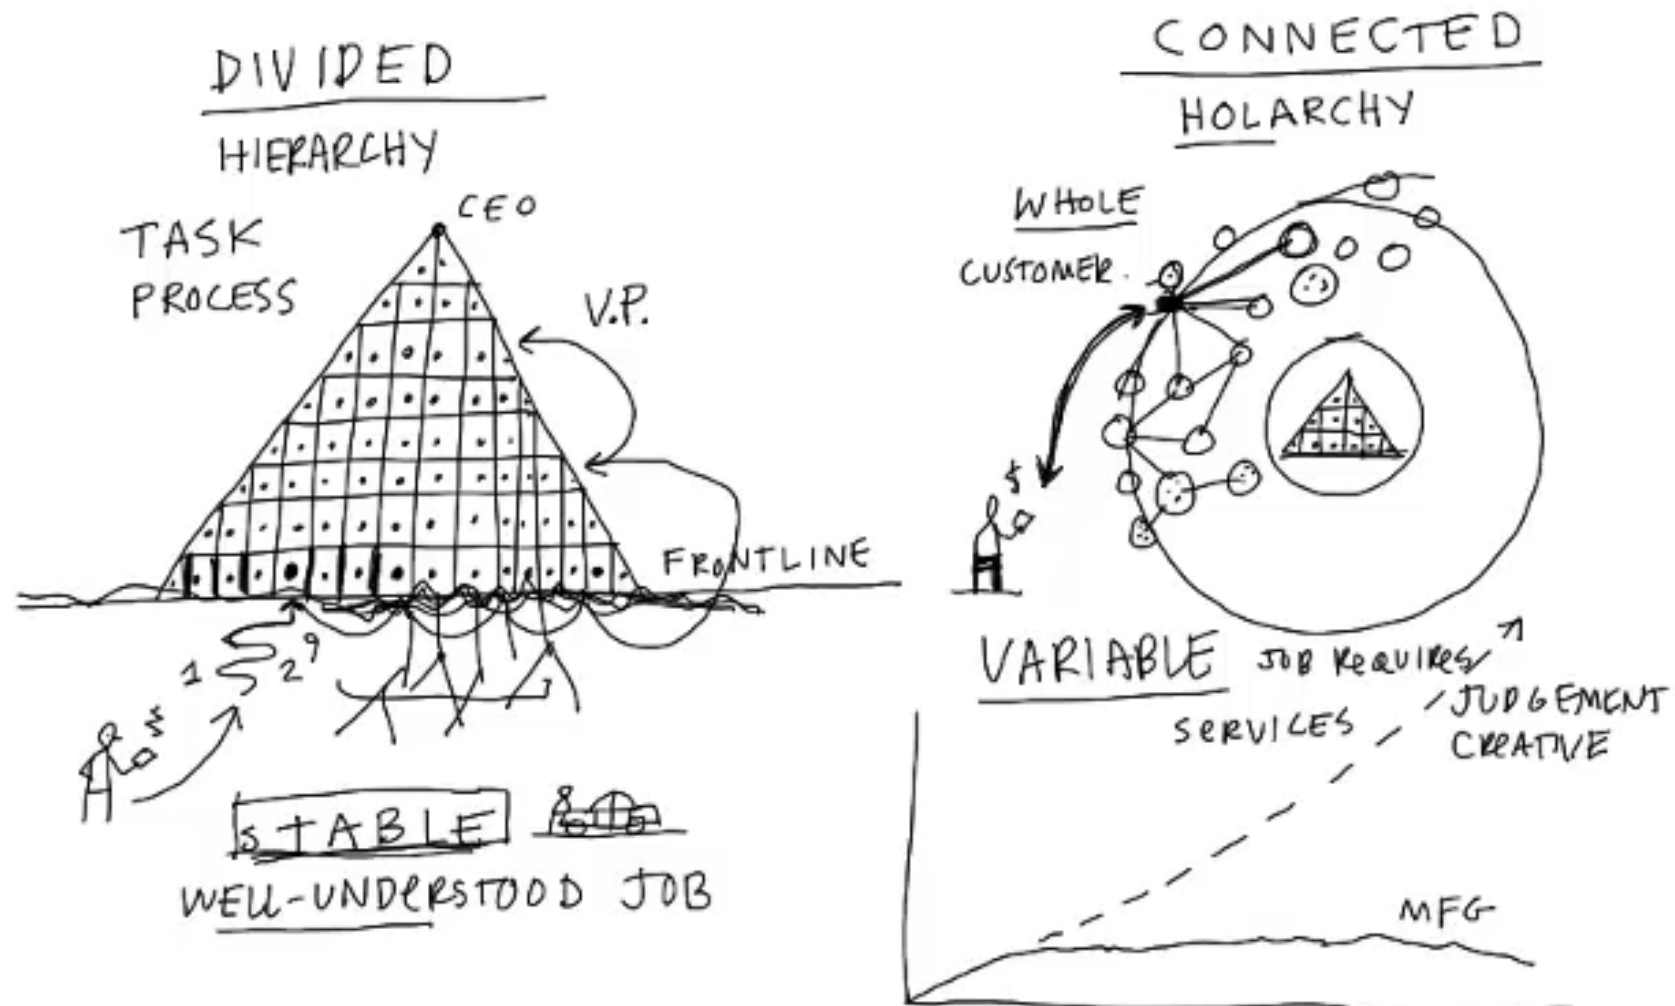 DIVIDED
HIERARCHY
TASK
PROCESS
CEO
V.P.
FRONTLINE
1
2
9
$
STABLE
WELL-UNDERSTOOD JOB
CONNECTED
HOLARCHY
WHOLE
CUSTOMER.
$
VARIABLE
JOB REQUIRES
JUDGEMENT
CREATIVE
SERVICES
MFG